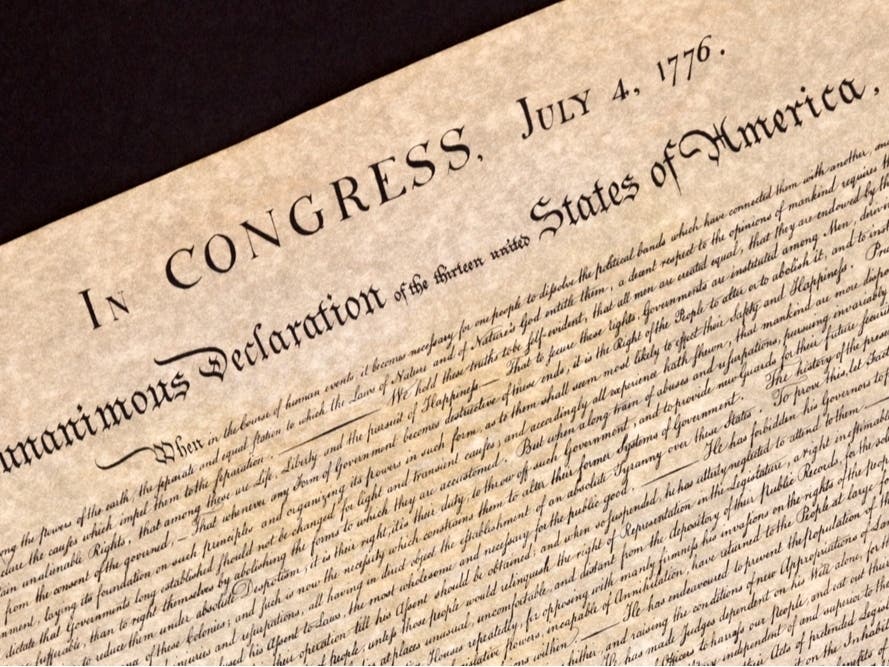 IN CONGRESS, JULY 4, 1776.
unanimous Declaration of the thirteen united States of America,
When in the Course of human events, it becomes necessary for one people to dissolve the political bands which have connected them with another, an
the powers of the earth, the separate and equal station to which the Laws of Nature and of Nature's God entitle them, a decent respect to the opinions of mankind requires
the causes which impel them to the separation. We hold these truths to be self-evident, that all men are created equal, that they are endowed by
unalienable Rights, that among these are Life, Liberty and the pursuit of Happiness.— That to secure these rights, Governments are instituted among Men,
from the consent of the governed, — That whenever any Form of Government becomes destructive of these ends, it is the Right of the People to alter or to abolish it, and to
laying its foundation on such principles and organizing its powers in such form, as to them shall seem most likely to effect their Safety and Happiness.
dictate that Governments long established should not be changed for light and transient causes; and accordingly all experience hath shewn, that mankind are more
sufferable, than to right themselves by abolishing the forms to which they are accustomed. But when a long train of abuses and usurpations, pursuing invariably
to reduce them under absolute Despotism, it is their right, it is their duty, to throw off such Government, and to provide new Guards for their future
of these Colonies; and such is now the necessity which constrains them to alter their former Systems of Government. The history of the
injuries and usurpations, all having in direct object the establishment of an absolute Tyranny over these States. To prove this, let
his Assent to Laws, the most wholesome and necessary for the public good. He has forbidden his Governors to
operation till his Assent should be obtained; and when so suspended, he has utterly neglected to attend to them.
people, unless those people would relinquish the right of Representation in the Legislature, a right
at places unusual, uncomfortable, and distant from the depository of their Public Records, for the
Houses repeatedly, for opposing with manly firmness his invasions on the rights of the
powers, incapable of Annihilation, have returned to the People at large
within. He has endeavoured to prevent the population of
hither, and raising the conditions of new Appropriations of
He has made Judges dependent on his Will alone, for
Officers to harass our people, and eat out
independent of and superior to the
Acts of pretended